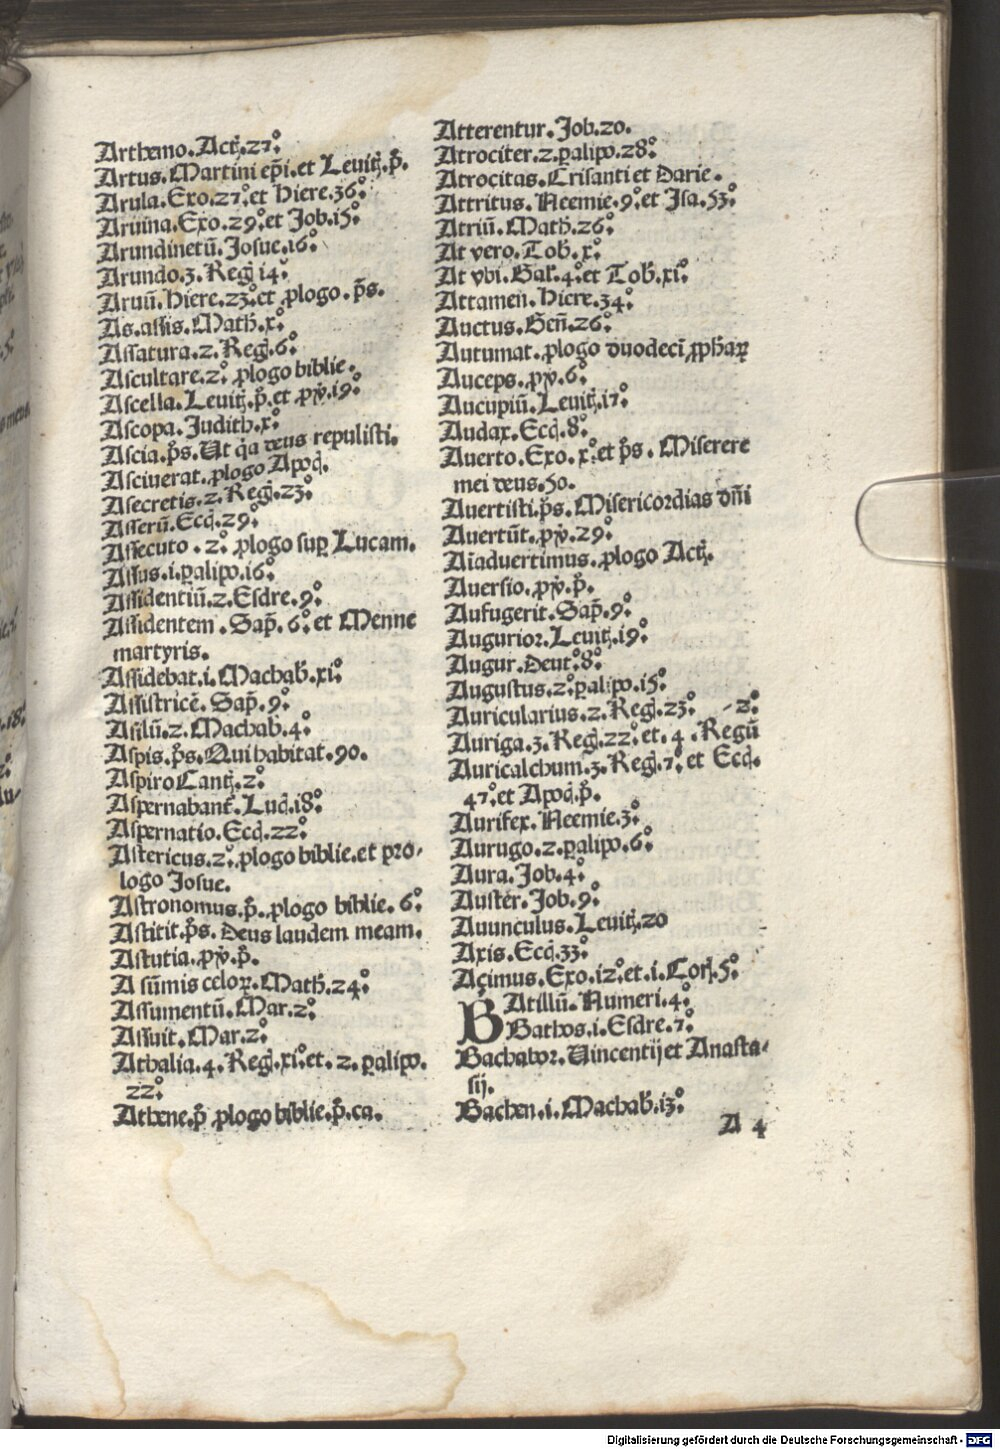 Arthemo.Actꝭ.27.°
Artus.Martini ep̄i.et Leuitꝭ.p̄.
Arula.Exo.27.°et Hiere.36.°
Aruina.Exo.29.°et Job.i5.°
Arundinetū.Josue.i6.°
Arundo.3.Regꝭ i4.°
Aruū.Hiere.23.°et ꝓlogo.p̄s.
As.assis.Math̄.x.°
Assatura.2.Regꝭ.6.°
Ascultare.2.° ꝓlogo biblie.
Ascella.Leuitꝭ.p̄.et ꝓv̄.i9.°
Ascopa.Judith.x.°
Ascia.p̄s.Ut q̇a deus repulisti.
Asciuerat.ꝓlogo Apoc̄.
Asecretis.2.Regꝭ.23.°
Asserū.Ecc̄.29.°
Assecuto.2.° ꝓlogo suꝑ Lucam.
Assus.i.ꝑalipo.i6.°
Assidentiū.2.Esdre.9.°
Assidentem.Sap̄.6.°et Menne
martyris.
Assidebat.i.Machab̄.xi.°
Assistricē.Sap̄.9.°
Asilū.2.Machab.4.°
Aspis.p̄s.Qui habitat.90.
Aspiro Cantꝭ.2.°
Aspernabant̄.Luc̄.i8.°
Aspernatio.Ecc̄.22.°
Astericus.2.°ꝓlogo biblie.et pro-
logo Josue.
Astronomus.p̄.ꝓlogo biblie.6.°
Astitit.p̄s.Deus laudem meam.
Astutia.ꝓv̄.p̄.
A sūmis celoꝝ.Math̄.24.°
Assumentū.Mar.2.°
Assuit.Mar.2.°
Athalia.4.Regꝭ.xi.°et.2.ꝑalipo.
22.°
Athene.p̄ ꝓlogo biblie.p̄.ca.
Atterentur.Job.20.
Atrociter.2.ꝑalipo.28.°
Atrocitas.Crisanti et Darie.
Attritus.Neemie.9.°et Isa.53.°
Atriū.Math̄.26.°
At vero.Tob̄.x.°
At vbi.Bar̄.4.°et Tob̄.xi.°
Attamen.Hiere.34.°
Auctus.Gen̄.26.°
Autumat.ꝓlogo duodecī ꝓph̄aꝝ
Auceps.ꝓv̄.6.°
Aucupiū.Leuitꝭ.i7.°
Audax.Ecc̄.8.°
Auerto.Exo.x.°et p̄s.Miserere
mei deus.50.
Auertisti.p̄s.Misericordias dn̄i
Auertūt.ꝓv̄.29.°
Aīaduertimus.ꝓlogo Actꝭ.
Auersio.ꝓv̄.p̄.
Aufugerit.Sap̄.9.°
Augurior.Leuitꝭ.i9.°
Augur.Deut.°8.°
Augustus.2.°ꝑalipo.i5.°
Auricularius.2.Regꝭ.23.° -2.°
Auriga.3.Regꝭ.22.°et.4.Regū
Auricalchum.3.Regꝭ.7.°et Ecc̄.
47.°et Apoc̄.p̄.
Aurifex.Neemie.3.°
Aurugo.2.ꝑalipo.6.°
Aura.Job.4.°
Auster.Job.9.°
Auunculus.Leuitꝭ.20
Axis.Ecc̄.33.°
Açimus.Exo.i2.°et.i.Corꝭ.5.°
BAtillū.Numeri.4.°
Bathos.i.Esdre.7.°
Bachabor.Uincentij et Anasta-
sij.
Bachen.i.Machab̄.i3.°
A 4
Digitalisierung gefördert durch die Deutsche Forschungsgemeinschaft - DFG